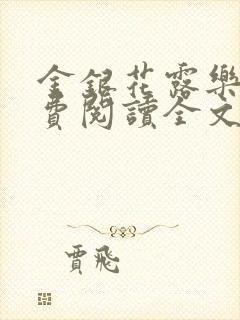 金銀花露樂
費閱讀全文
賈飛